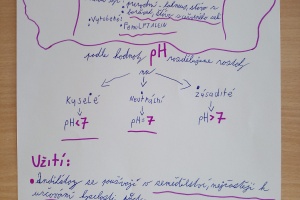 přírodní - lakmus, slovo z
• Vytvořené
• FENOLFTALEIN
podle hodnoty pH rozdělujeme roztoky
na
• Kyselé
• Neutrální
• Zásadité
pH<7
pH=7
pH>7
Užití:
• Indikátory se používají v zemědělství, nejčastěji k
určování kyselosti půdy